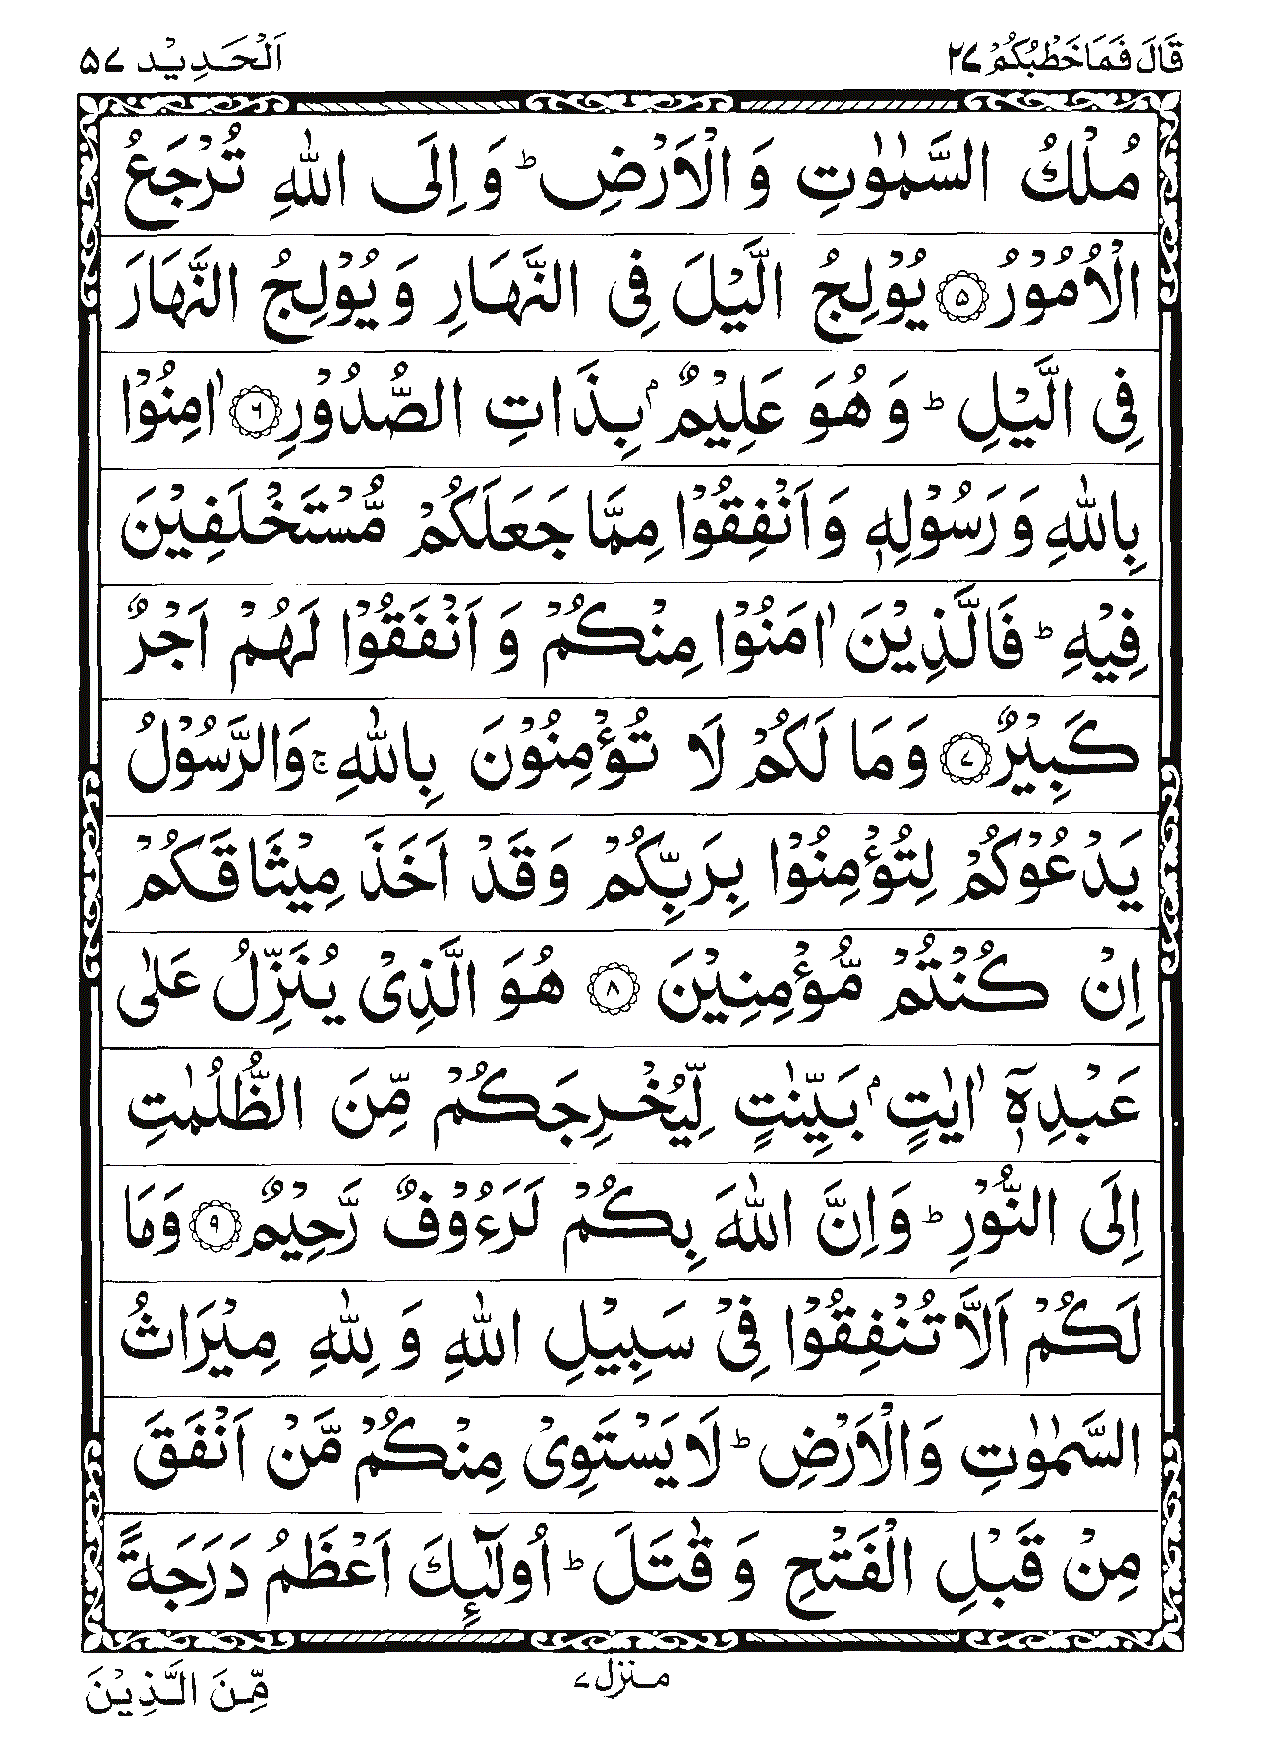 قَالَ فَمَا خَطْبُكُمْ ۲۷
اَلْحَدِيْد ۵۷
مُلْكُ السَّمٰوٰتِ وَ الْاَرْضِ ؕ وَ اِلَى اللّٰهِ تُرْجَعُ
الْاُمُوْرُ ۵ يُوْلِجُ الَّيْلَ فِى النَّهَارِ وَ يُوْلِجُ النَّهَارَ
فِى الَّيْلِ ؕ وَ هُوَ عَلِيْمٌۢ بِذَاتِ الصُّدُوْرِ ۶ اٰمِنُوْا
بِاللّٰهِ وَ رَسُوْلِهٖ وَ اَنْفِقُوْا مِمَّا جَعَلَكُمْ مُّسْتَخْلَفِيْنَ
فِيْهِ ؕ فَالَّذِيْنَ اٰمَنُوْا مِنْكُمْ وَ اَنْفَقُوْا لَهُمْ اَجْرٌ
كَبِيْرٌ ۷ وَ مَا لَكُمْ لَا تُؤْمِنُوْنَ بِاللّٰهِ ۚ وَالرَّسُوْلُ
يَدْعُوْكُمْ لِتُؤْمِنُوْا بِرَبِّكُمْ وَ قَدْ اَخَذَ مِيْثَاقَكُمْ
اِنْ كُنْتُمْ مُّؤْمِنِيْنَ ۸ هُوَ الَّذِىْ يُنَزِّلُ عَلٰى
عَبْدِهٖۤ اٰيٰتٍۭ بَيِّنٰتٍ لِّيُخْرِجَكُمْ مِّنَ الظُّلُمٰتِ
اِلَى النُّوْرِ ؕ وَ اِنَّ اللّٰهَ بِكُمْ لَرَءُوْفٌ رَّحِيْمٌ ۹ وَ مَا
لَكُمْ اَلَّا تُنْفِقُوْا فِىْ سَبِيْلِ اللّٰهِ وَ لِلّٰهِ مِيْرَاثُ
السَّمٰوٰتِ وَ الْاَرْضِ ؕ لَا يَسْتَوِىْ مِنْكُمْ مَّنْ اَنْفَقَ
مِنْ قَبْلِ الْفَتْحِ وَ قٰتَلَ ؕ اُولٰٓئِكَ اَعْظَمُ دَرَجَةً
منزل ۷
مِّنَ الَّذِيْنَ